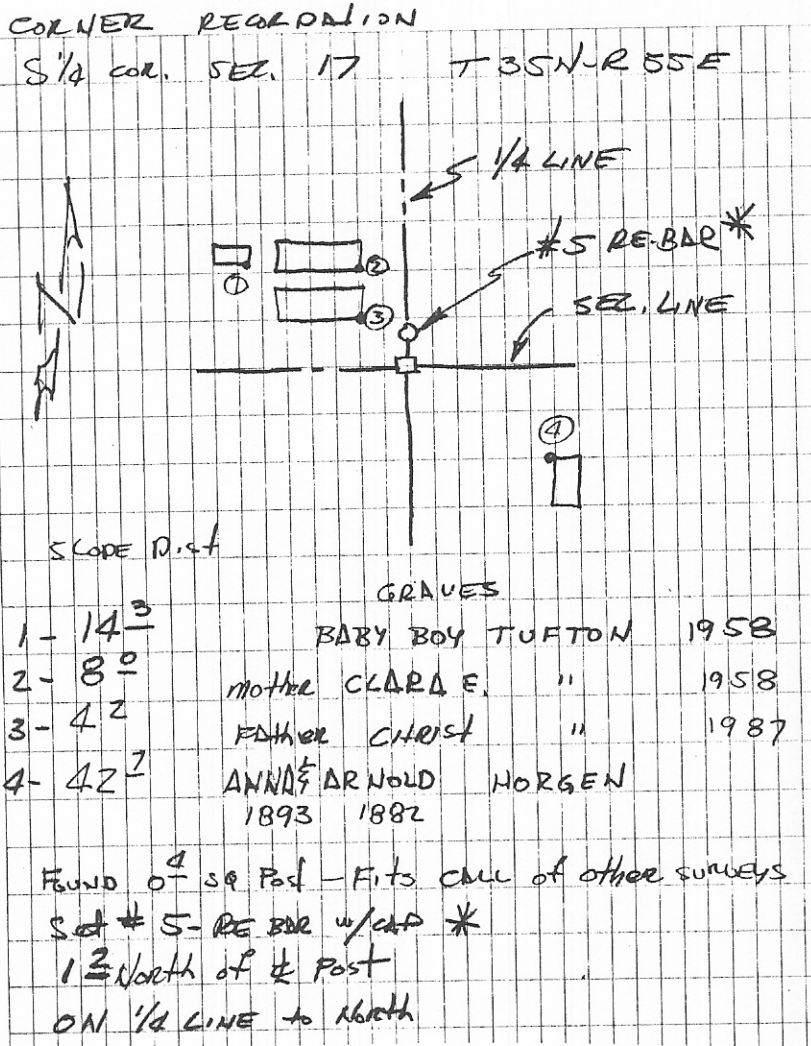 CORNER RECORDATION
S 1/4 COR. SEC. 17 T 35N-R 55E
1/4 LINE
#5 RE-BAR *
SEC. LINE
N
1
2
3
4
SLOPE Dist
GRAVES
1 - 14 3 BABY BOY TUFTON 1958
2 - 8 0 mother CLARA E. " 1958
3 - 4 2 FATHER CHRIST " 1987
4 - 42 7 ANNA & ARNOLD HORGEN
1893 1882
FOUND 0 4 SQ Post - Fits CALL of other SURVEYS
Set # 5 - RE BAR w/CAP *
1 2 North of ℄ Post
ON 1/4 LINE to North